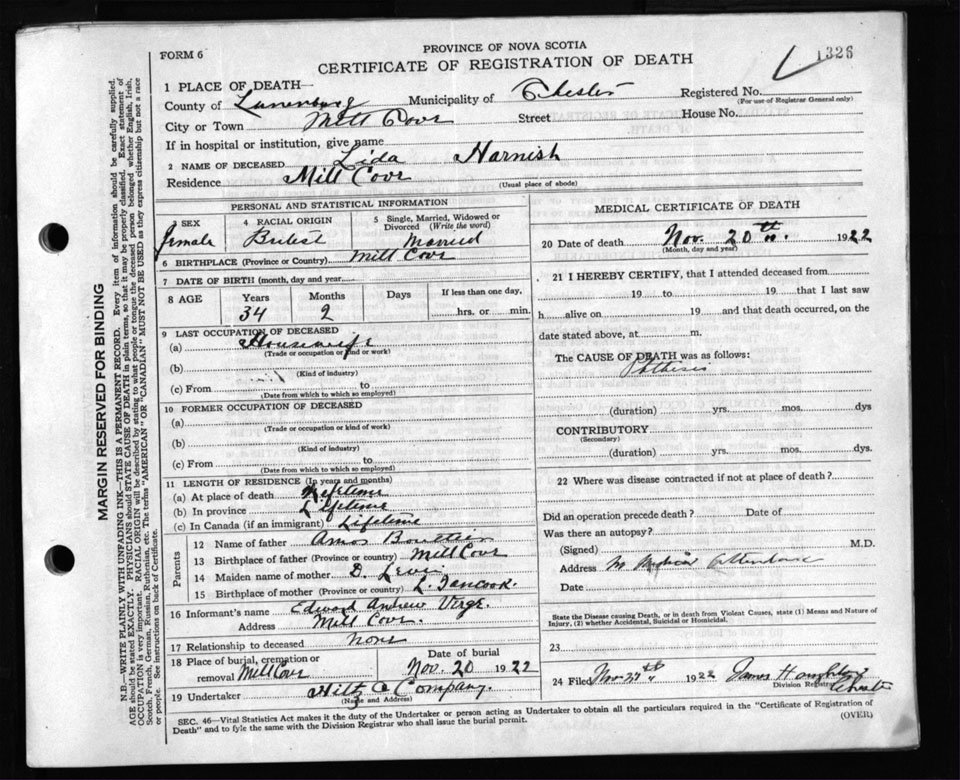 FORM 6
PROVINCE OF NOVA SCOTIA
CERTIFICATE OF REGISTRATION OF DEATH
1326
MARGIN RESERVED FOR BINDING
N.B.—WRITE PLAINLY WITH UNFADING INK—THIS IS A PERMANENT RECORD. Every item of information should be carefully supplied.
AGE should be stated EXACTLY. PHYSICIANS should STATE CAUSE OF DEATH in plain terms, so that it may be properly classified. Exact statement of
OCCUPATION is very important. RACIAL ORIGIN will be described by stating to what people or tongue the deceased person belonged whether English, Irish,
Scotch, French, German, Russian, Ruthenian, etc. The terms "AMERICAN" OR "CANADIAN" MUST NOT BE USED as they express citizenship but not a race
or people. See instructions on back of Certificate.
1 PLACE OF DEATH—
County of Lunenburg Municipality of Chester Registered No.
(For use of Registrar General only)
City or Town Mill Cove Street House No.
If in hospital or institution, give name
2 NAME OF DECEASED Lida Harnish
Residence Mill Cove
(Usual place of abode)
PERSONAL AND STATISTICAL INFORMATION
3 SEX female
4 RACIAL ORIGIN
5 Single, Married, Widowed or Divorced (Write the word) Married
6 BIRTHPLACE (Province or Country) Mill Cove
7 DATE OF BIRTH (month, day and year)
8 AGE Years Months Days If less than one day,
34 2 hrs. or min.
9 LAST OCCUPATION OF DECEASED
(a) Housewife
(Trade or occupation or kind or work)
(b)
(Kind of industry)
(c) From to
(Date from which to which so employed)
10 FORMER OCCUPATION OF DECEASED
(a)
(Trade or occupation or kind of work)
(b)
(Kind of industry)
(c) From to
(Date from which to which so employed)
11 LENGTH OF RESIDENCE (In years and months)
(a) At place of death Lifetime
(b) In province Lifetime
(c) In Canada (if an immigrant) Lifetime
Parents
12 Name of father Amos Boutilier
13 Birthplace of father (Province or country) Mill Cove
14 Maiden name of mother D. Levi
15 Birthplace of mother (Province or country) L. Tancook.
16 Informant's name Edward Andrew
Address Mill Cove.
17 Relationship to deceased none
18 Place of burial, cremation or removal Mill Cove
Date of burial
Nov. 20 1922
19 Undertaker Hiltz & Company.
(Name and Address)
MEDICAL CERTIFICATE OF DEATH
20 Date of death Nov. 20th. 1922
(Month, day and year)
21 I HEREBY CERTIFY, that I attended deceased from
19 to 19 that I last saw
h alive on 19 and that death occurred, on the
date stated above, at m.
The CAUSE OF DEATH was as follows:
Pthisis
(duration) yrs. mos. dys
CONTRIBUTORY
(Secondary)
(duration) yrs. mos. dys.
22 Where was disease contracted if not at place of death?
Did an operation precede death? Date of
Was there an autopsy?
(Signed) M.D.
Address No Medical Attendance
Date
State the Disease causing Death, or in death from Violent Causes, state (1) Means and Nature of
Injury, (2) whether Accidental, Suicidal or Homicidal.
23
24 Filed Nov 1922 James
Division Registrar
Chester
SEC. 46—Vital Statistics Act makes it the duty of the Undertaker or person acting as Undertaker to obtain all the particulars required in the "Certificate of Registration of
Death" and to fyle the same with the Division Registrar who shall issue the burial permit.
(OVER)